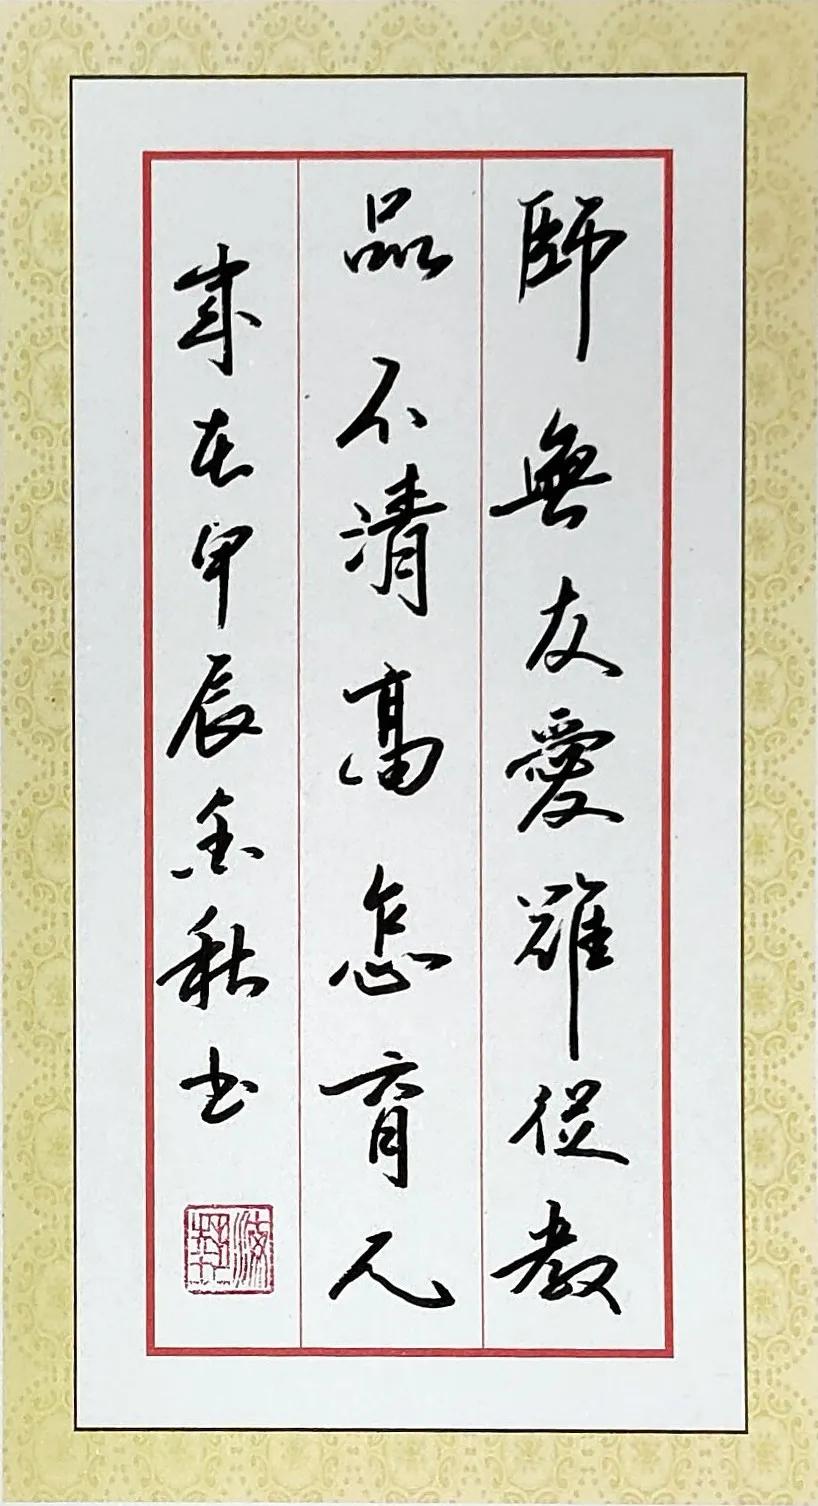 師無友愛難從教
品不清高怎育人
歲在甲辰金秋书